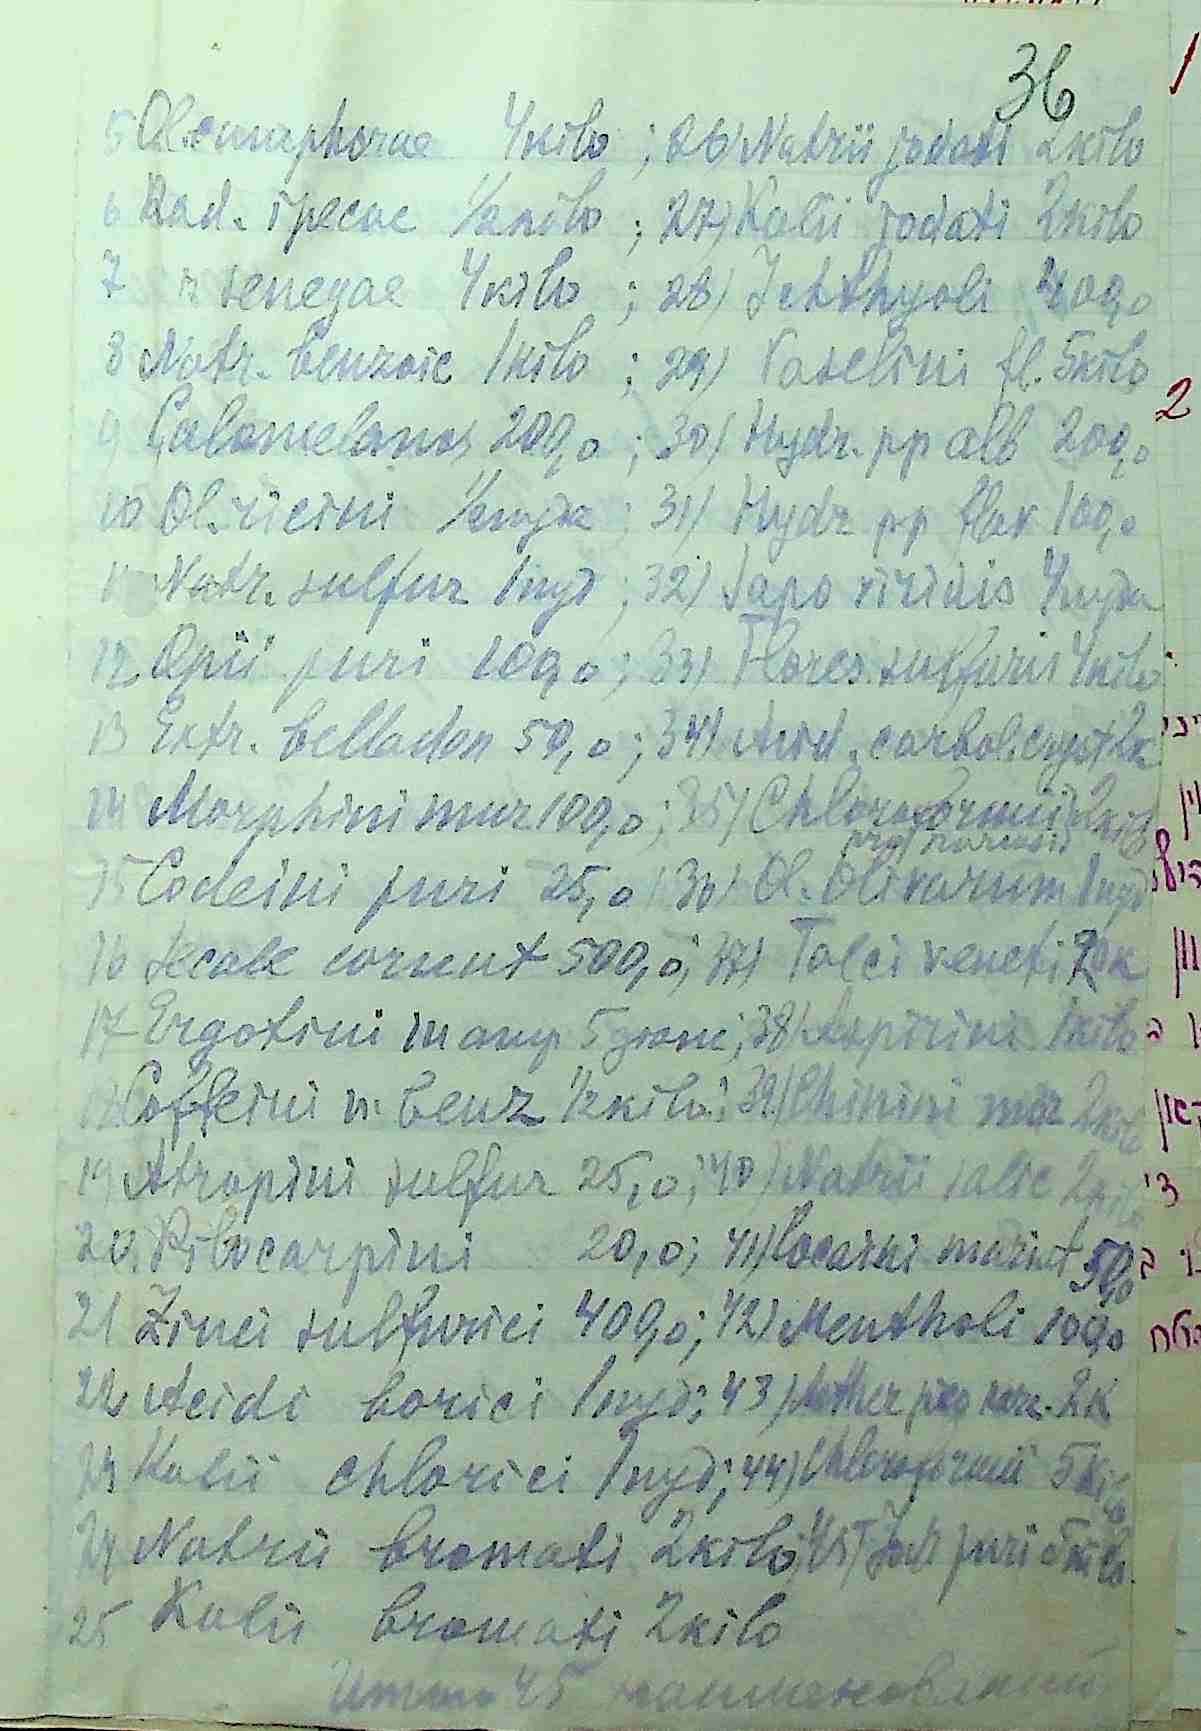 36
5 Ol. camphorae 4 kilo ; 26) Natrii jodati 2 kilo
6 Rad. ipecac ½ kilo ; 27) Kalii jodati 2 kilo
7 " senegae 4 kilo ; 28) Ichthyoli 400,0
8 Natr. benzoic 1 kilo ; 29) Vaselini fl. 5 kilo
9 Calomelanos 200,0 ; 30) Hydr. pp alb 200,0
10 Ol. ricini ½ пуда ; 31) Hydr pp flav 100,0
11 Natr. sulfur 1 пуд ; 32) Sapo viridis пуда
12 Opii puri 100,0 ; 33) Flores sulfuris 4 kilo
13 Extr. belladon 50,0 ; 34) Acid. carbol. cryst 2k
14 Morphini mur 100,0 ; 35) Chloroformii 2 kilo
pro narcosi
15 Codeini puri 25,0 ; 36) Ol. Olivarum 1 пуд
16 Secale cornut 500,0 ; 37) Talci veneti k
17 Ergotini in amp 5 gram ; 38) Aspirini 1 kilo
18 Coffeini n. benz ½ kilo ; 39) Chinini mur 2 kilo
19 Atropini sulfur 25,0 ; 40) Natrii salic 2 kilo
20. Pilocarpini 20,0 ; 41) Cocaini muriat 50,0
21 Zinci sulfurici 400,0 ; 42) Mentholi 100,0
22 Acidi borici 1 пуд ; 43) Aether pro narc. 2k
23 Kalii chlorici 1 пуд ; 44) Chloroformii 5 kilo
24 Natrii bromati 2 kilo ; 45) Jodi puri 5 kilo
25 Kalii bromati 2 kilo
Итого 45 наименований
1
2